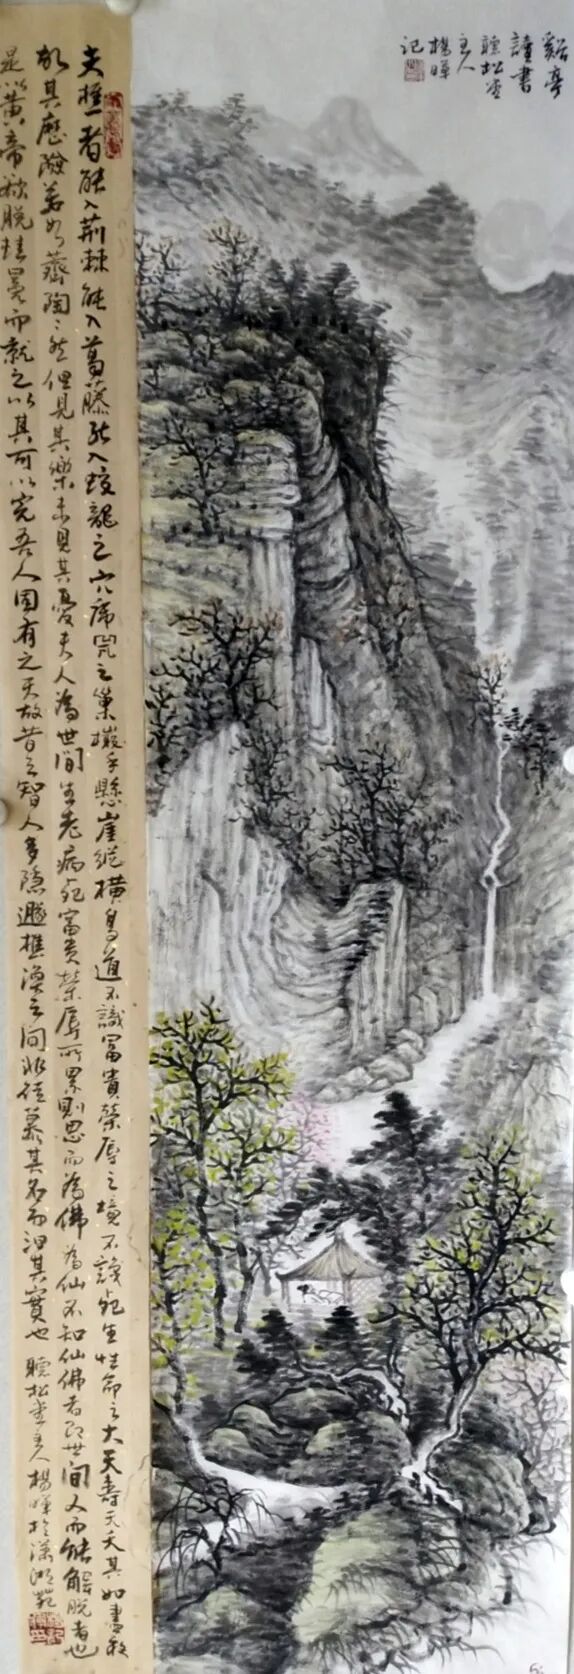 谿亭
讀書
聽松堂
主人
楊暉
記
夫樵者能入荊棘能入葛藤能入蛟龍之穴虎兕之巢撒手懸崖縱橫鳥道不識富貴榮辱之境不識死生性命之大夭壽天其如盡
故其歷險若如薺陶陶然但見其樂未見其憂夫人為世間生老病死富貴榮辱所累則思而為佛為仙不知仙佛者即世間人而能解脫者也
是以黃帝欲脫而就之以其可以完吾人固有之天故昔之智人多隱遯樵漁之間非徒慕其名而汩其實也 聽松堂主人楊暉於